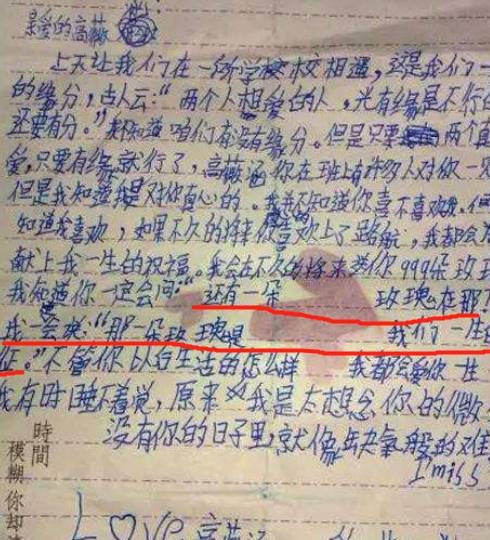 最爱的高薇
上天让我们在一所学校相遇,这是我们一
的缘分,古人云:“两个人相爱的人,光有缘是不行的
还要有分。”我不知道咱们有没有缘分。但是只要两个真
爱,只要有缘就行了,高薇,你在班上有许多人对你一
但是我知道我是对你真心的。我并不知道你喜不喜欢我。但
知道我喜欢,如果不久的将来你喜欢上了路航,我都会
献上我一生的祝福。我会在不久的将来送你999朵玫瑰
我知道你一定会问:“还有一朵 玫瑰在那?
我一会说:“那一朵玫瑰是 我们一生的
证。”不管你以后生活的怎么样 我都会爱你一生
我有时睡不着觉,原来 我是太想念你的微
没有你的日子里,就像缺氧般的难
I'miss
LOVE 高薇
時間
模糊你却